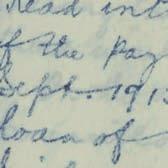 Read int
f the pay
Sept. 191
loan of